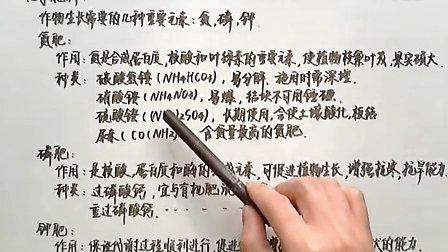 作物生长需要的几种重要元素:氮,磷,钾
氮肥:
作用:氮是合成蛋白质,核酸和叶绿素的重要元素,使植物枝繁叶茂,果实硕大.
种类:碳酸氢铵(NH4HCO3),易分解,施用时需深埋.
硝酸铵(NH4NO3),易爆,结块不可用铁砸.
硫酸铵(NH4)2SO4),长期使用,会使土壤酸化,板结
尿素(CO(NH2) 含氮量最高的氮肥.
磷肥:
作用:是核酸,蛋白质和酶的 元素,可促进植物生长,增强抗寒,抗旱能
种类:过磷酸钙,宜与有机肥
重过磷酸钙.
钾肥:
作用:保证代谢过程顺利进行,促进 的能力.